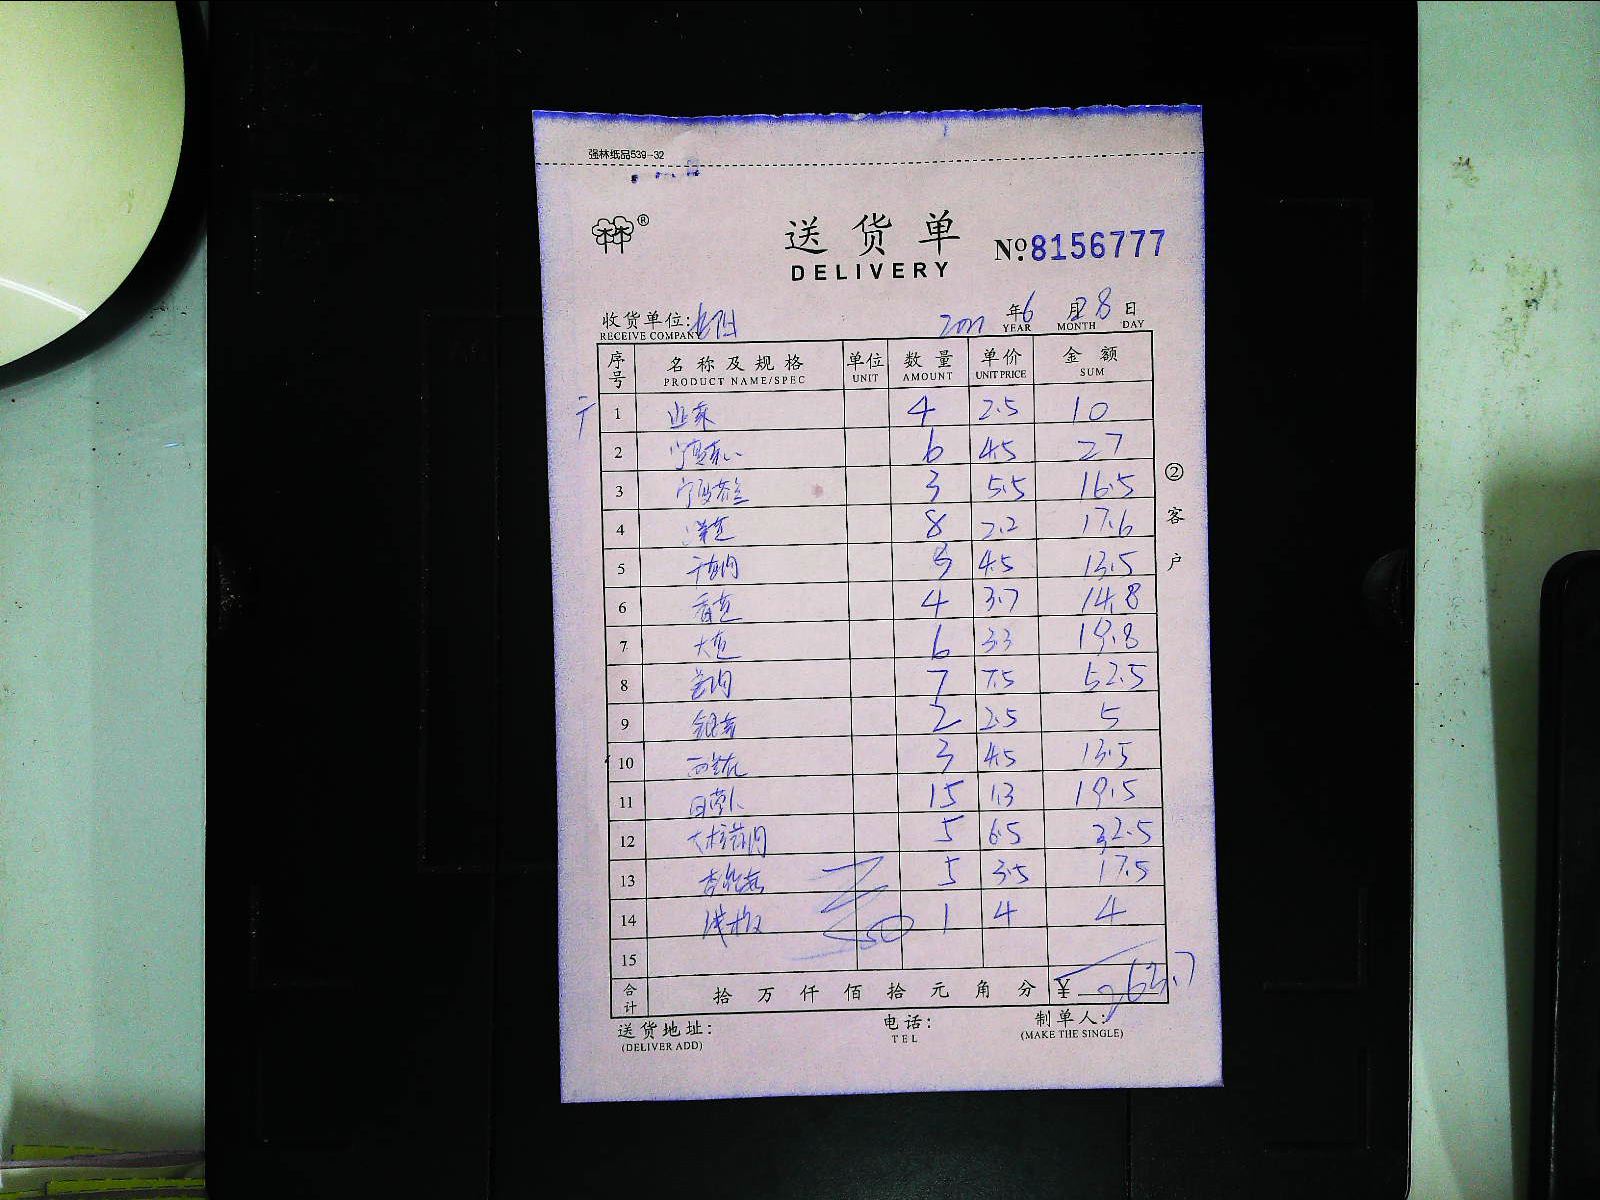 强林纸品539-32
®
送货单
DELIVERY
№:8156777
收货单位:
RECEIVE COMPANY
年 6 月 28 日
YEAR MONTH DAY
序号 名称及规格 单位 数量 单价 金额
PRODUCT NAME/SPEC UNIT AMOUNT UNIT PRICE SUM
1 韭菜 4 2.5 10
2 宁夏菜心 6 4.5 27
3 宁夏芥兰 3 5.5 16.5
4 8 2.2 17.6
5 3 4.5 13.5
6 香芹 4 3.7 14.8
7 大 6 3.3 19.8
8 7 7.5 52.5
9 银芽 2 2.5 5
10 西兰花 3 4.5 13.5
11 白萝卜 15 1.3 19.5
12 大 5 6.5 32.5
13 5 3.5 17.5
14 1 4 4
15
合计 拾 万 仟 佰 拾 元 角 分 ¥ 263.7
②客户
送货地址:
(DELIVER ADD)
电话:
TEL
制单人:
(MAKE THE SINGLE)